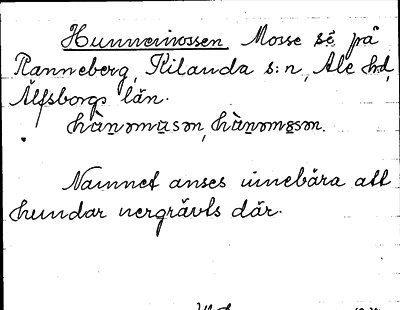 Hunnemossen Mosse så på
Ranneberg, Kilanda s:n, Ale hd,
Älfsborgs län.
hànomåsən, hànomosən.
Namnet anses innebära att
hundar nergrävts där.